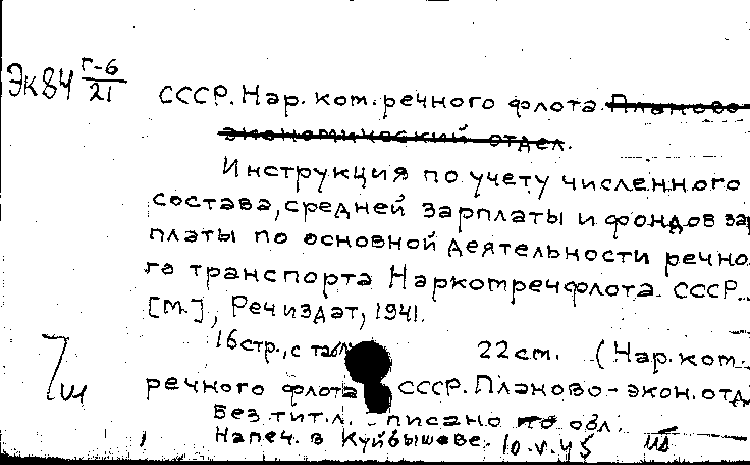 Эк84 Г-6/21
СССР. Нар. ком. речного флота. Планово
экономический отдел.
Инструкция по учету численного
состава, средней зарплаты и фондов зар
платы по основной деятельности речно
го транспорта Наркомречфлота СССР.
[М.], Речиздат, 1941.
16 стр., с табл. 22 см. (Нар. ком.
речного флота СССР. Планово-экон. отд.
Без тит. л. писано по обл.
Напеч. в Куйбышеве. 10.V.45